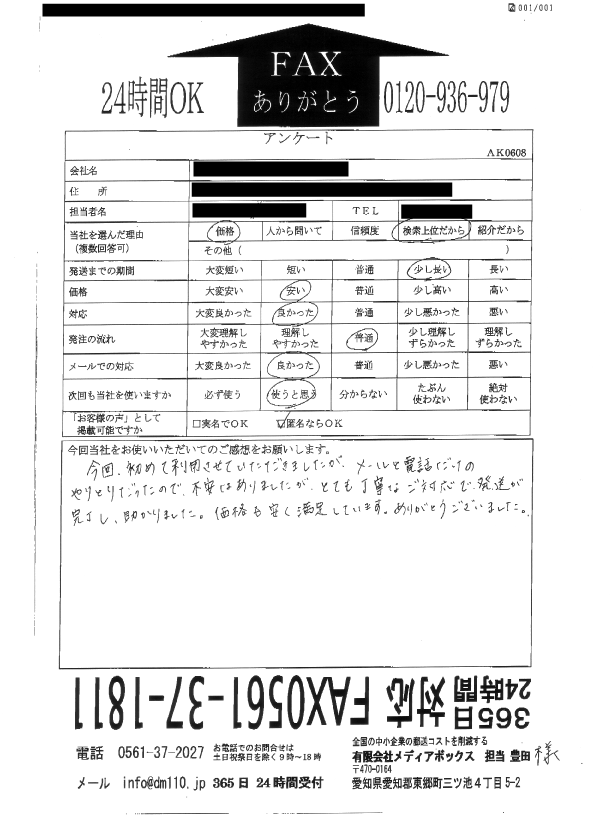 001/001
FAX
ありがとう
24時間OK
0120-936-979
アンケート
AK0608
会社名
住 所
担当者名 TEL
当社を選んだ理由
(複数回答可)
価格 人から聞いて 信頼度 検索上位だから 紹介だから
その他( )
発送までの期間 大変短い 短い 普通 少し長い 長い
価格 大変安い 安い 普通 少し高い 高い
対応 大変良かった 良かった 普通 少し悪かった 悪い
発注の流れ 大変理解しやすかった 理解しやすかった 普通 少し理解しずらかった 理解しずらかった
メールでの対応 大変良かった 良かった 普通 少し悪かった 悪い
次回も当社を使いますか 必ず使う 使うと思う 分からない たぶん使わない 絶対使わない
「お客様の声」として
掲載可能ですか
□実名でOK ☑匿名ならOK
今回当社をお使いいただいてのご感想をお願いします。
今回、初めて利用させていただきましたが、メールと電話だけの
やりとりだったので、不安はありましたが、とても丁寧なご対応で、発送が
完了し、助かりました。価格も安く満足しています。ありがとうございました。
365日
24時間 対応 FAX0561-37-1811
電話 0561-37-2027 お電話でのお問合せは
土日祝祭日を除く9時~18時
メール info@dm110.jp 365日 24時間受付
全国の中小企業の郵送コストを削減する
有限会社メディアボックス 担当 豊田 様
〒470-0164
愛知県愛知郡東郷町三ツ池4丁目5-2